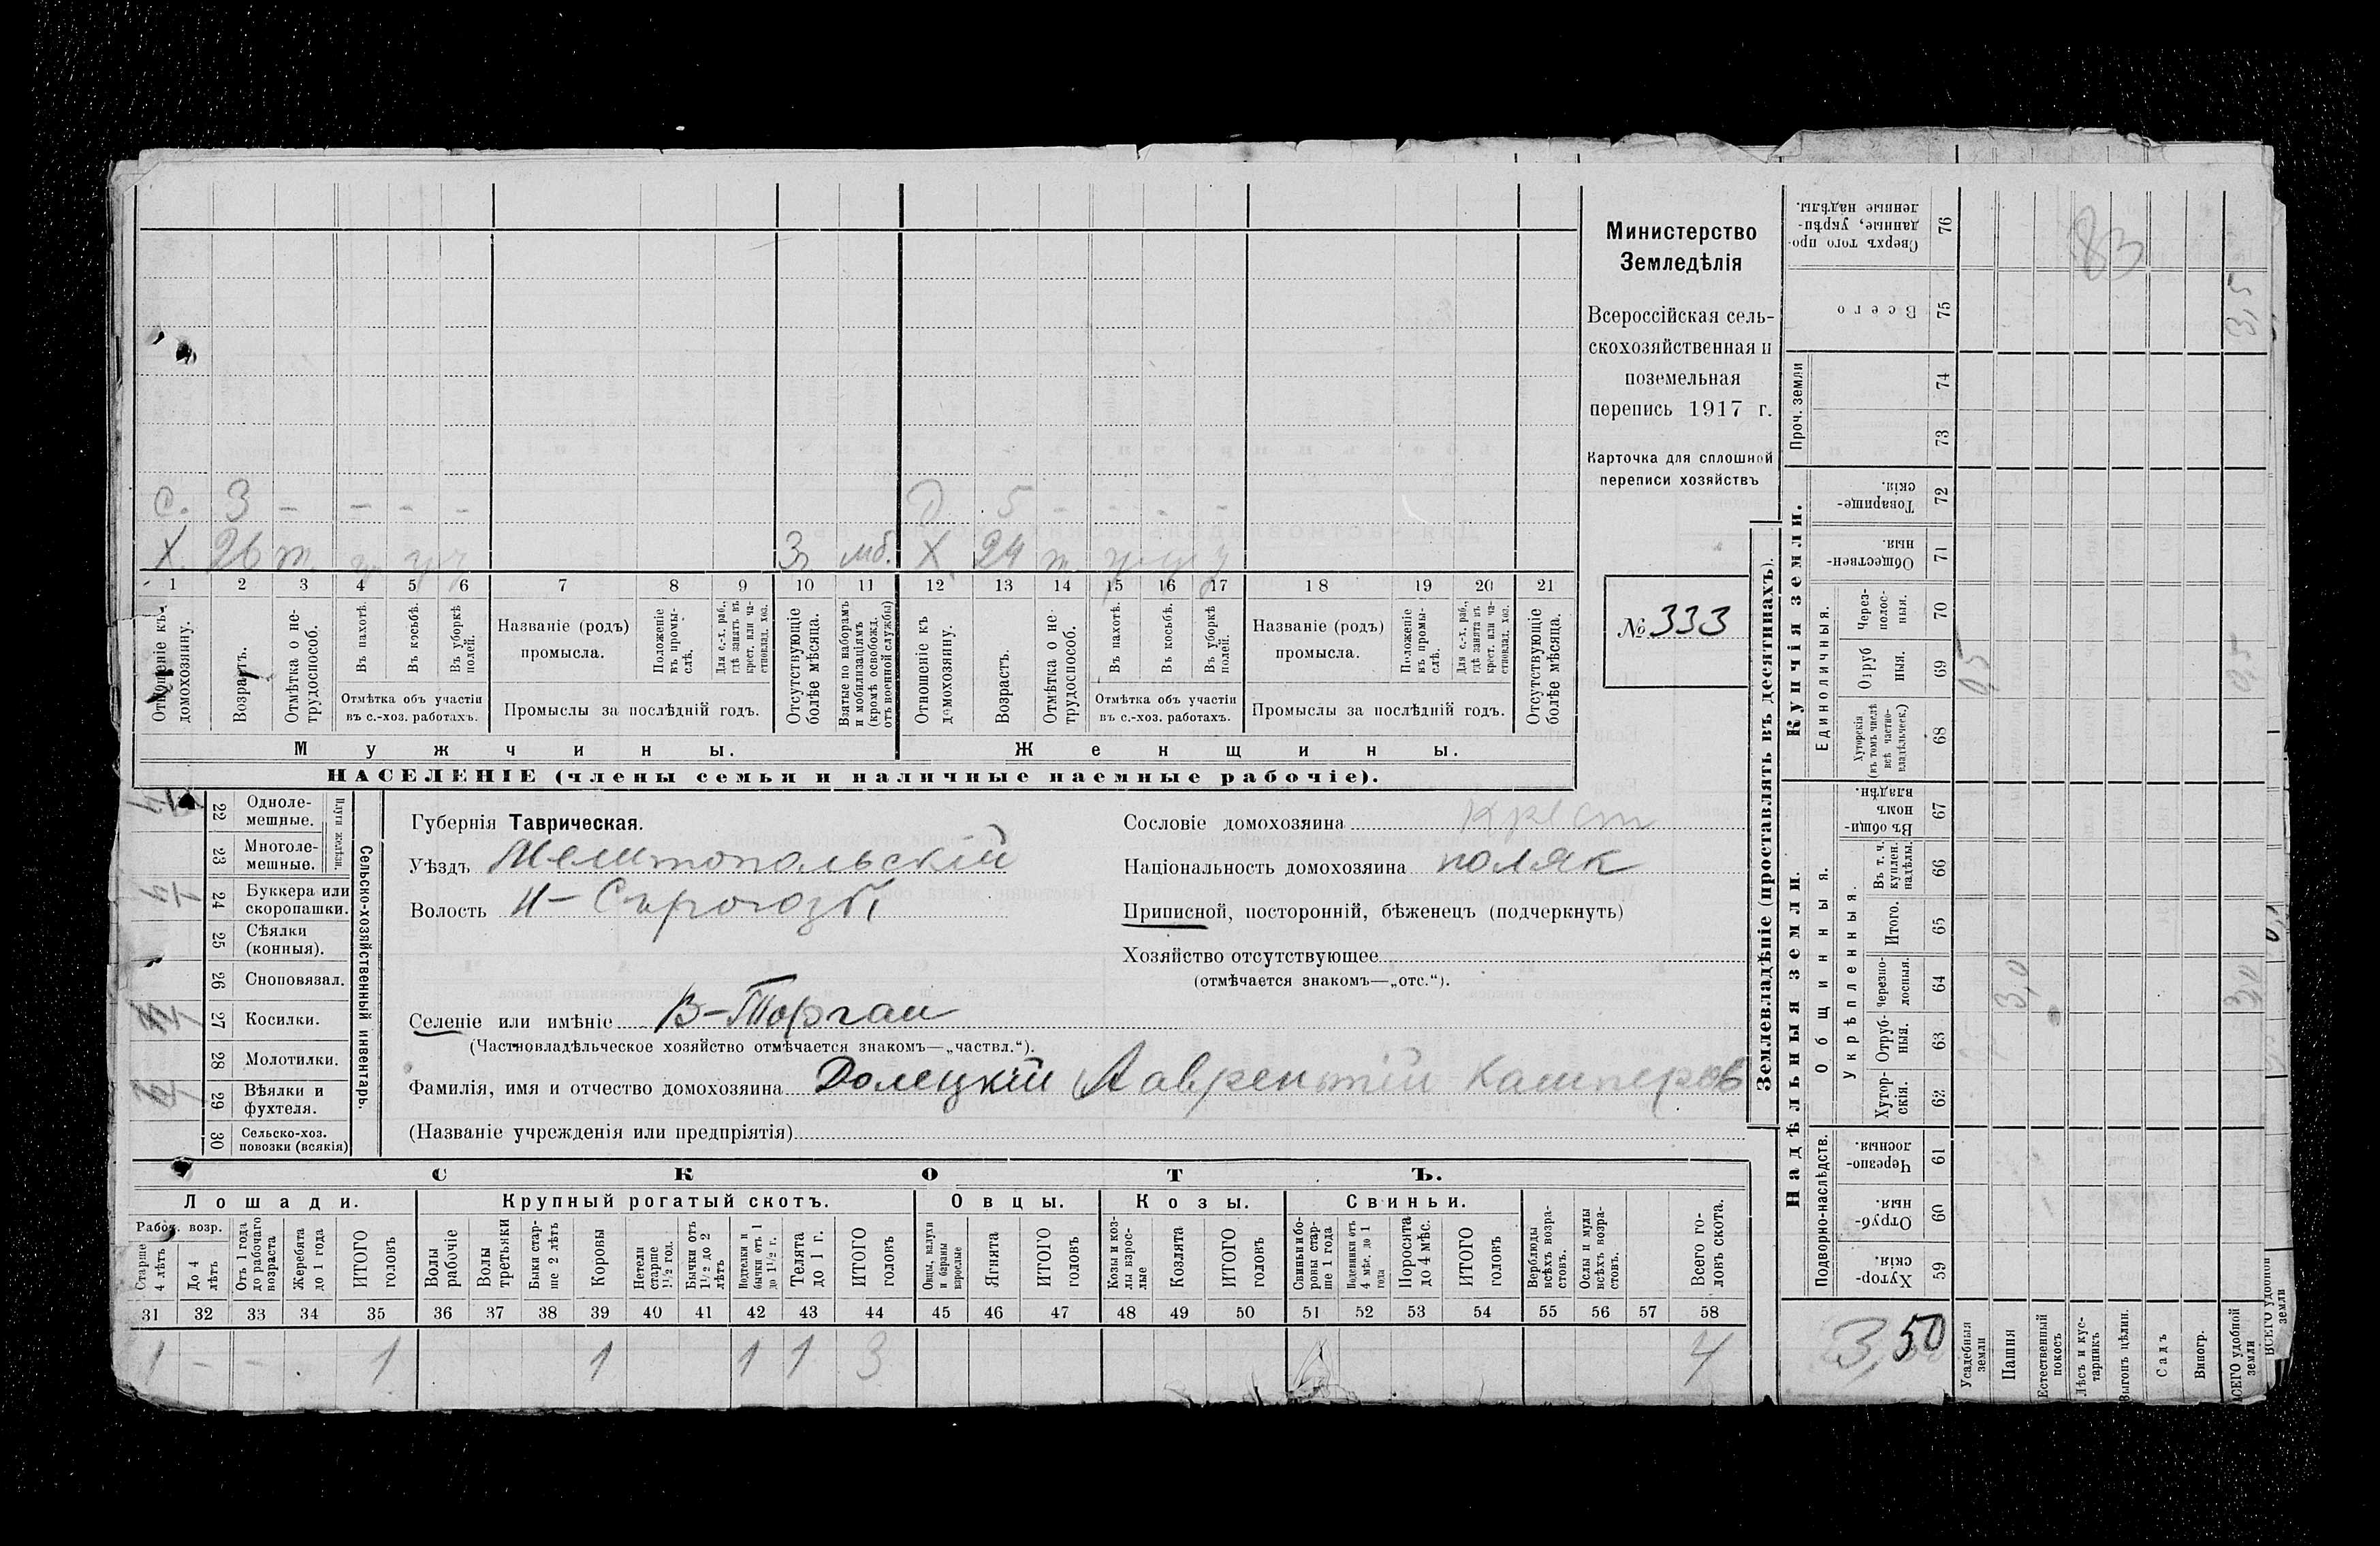 Министерство
Земледѣлія
Всероссійская сель-
скохозяйственная и
поземельная
перепись 1917 г.
Карточка для сплошной
переписи хозяйствъ
№ 333
с. 3 - - - - Д 5 - - - -
Х. 26 т. 3 мб. Х. 24 т.
1 2 3 4 5 6 7 8 9 10 11 12 13 14 15 16 17 18 19 20 21
Отношеніе къ домохозяину.
Возрастъ.
Отмѣтка о не-трудоспособ.
Въ пахотѣ.
Въ косьбѣ.
Въ уборкѣ полей.
Отмѣтка объ участіи
въ с.-хоз. работахъ.
Названіе (родъ)
промысла.
Положеніе въ промы-слѣ.
Для с.-х. раб., гдѣ занятъ въ крест. или ча-стновлад. хоз.
Промыслы за послѣдній годъ.
Отсутствующіе болѣе мѣсяца.
Взятые по наборамъ и мобилизаціямъ (кромѣ освобожд. отъ военной службы)
Отношеніе къ домохозяину.
Возрастъ.
Отмѣтка о не-трудоспособ.
Въ пахотѣ.
Въ косьбѣ.
Въ уборкѣ полей.
Отмѣтка объ участіи
въ с.-хоз. работахъ.
Названіе (родъ)
промысла.
Положеніе въ промы-слѣ.
Для с.-х. раб., гдѣ занята въ крест. или ча-стновлад. хоз.
Промыслы за послѣдній годъ.
Отсутствующіе болѣе мѣсяца.
Мужчины. Женщины.
НАСЕЛЕНІЕ (члены семьи и наличные наемные рабочіе).
22 Одноле-мешные.
23 Многоле-мешные.
Плуги желѣзн.
24 Буккера или скоропашки.
25 Сѣялки (конныя).
26 Сноповязал.
27 Косилки.
28 Молотилки.
29 Вѣялки и фухтеля.
30 Сельско-хоз. повозки (всякія)
Сельско-хозяйственный инвентарь.
Губернія Таврическая.
Уѣздъ Мелитопольскій
Волость Н-Сѣрогозы
Селеніе или имѣніе В-Торгаи
(Частновладѣльческое хозяйство отмѣчается знакомъ—„частвл.“).
Фамилія, имя и отчество домохозяина Долецкій Лаврентій Кашперов
(Названіе учрежденія или предпріятія)
Сословіе домохозяина крест
Національность домохозяина поляк
Приписной, посторонній, бѣженецъ (подчеркнуть)
Хозяйство отсутствующее
(отмѣчается знакомъ—„отс.“).
СКОТЪ.
Лошади. Крупный рогатый скотъ. Овцы. Козы. Свиньи.
Рабоч. возр.
Старше 4 лѣтъ
До 4 лѣтъ
Отъ 1 года до рабочаго возраста
Жеребята до 1 года
ИТОГО головъ
Волы рабочіе
Волы третьяки
Быки стар-ше 2 лѣтъ
Коровы
Нетели старше 1½ год.
Бычки отъ 1½ до 2 лѣтъ
Подтелки и бычки отъ 1 до 1½ г.
Телята до 1 г.
ИТОГО головъ
Овцы, валухи и бараны взрослые
Ягнята
ИТОГО головъ
Козы и коз-лы взрос-лые
Козлята
ИТОГО головъ
Свиньи и бо-ровы стар-ше 1 года
Подсвинки отъ 4 мѣс. до 1 года
Поросята до 4 мѣс.
ИТОГО головъ
Верблюды всѣхъ возра-стовъ.
Ослы и мулы всѣхъ возра-стовъ.
Всего го-ловъ скота.
31 32 33 34 35 36 37 38 39 40 41 42 43 44 45 46 47 48 49 50 51 52 53 54 55 56 57 58
1 - - 1 1 1 1 3 4
Землевладѣніе (проставлять въ десятинахъ).
Надѣльныя земли. Купчія земли.
Проч. земли
Подворно-наслѣдств.
Общинныя.
Укрѣпленныя.
Единоличныя.
76 Сверхъ того про-данные, укрѣп-ленные надѣлы.
75 Всего
74
73
72 Товарище-скія.
71 Обществен-ныя.
70 Через-полос-ныя.
69 Отруб ныя.
68 Хуторскія (въ томъ числѣ всѣ частно-владѣльческ.)
67 Въ общи-номъ владѣн.
66 Въ т. ч. куплен. надѣлы.
65 Итого.
64 Черезпо-лосныя.
63 Отруб-ныя.
62 Хутор-скія.
61 Черезпо-лосныя.
60 Отруб-ныя.
59 Хутор-скія.
83
3,5
0,5 0,5
3,0 3,0
3,50
Усадебныя земли
Пашня
Естественный покосъ
Лѣсъ и кус-тарникъ
Выгонъ цѣлин.
Садъ
Виногр.
ВСЕГО удобной земли